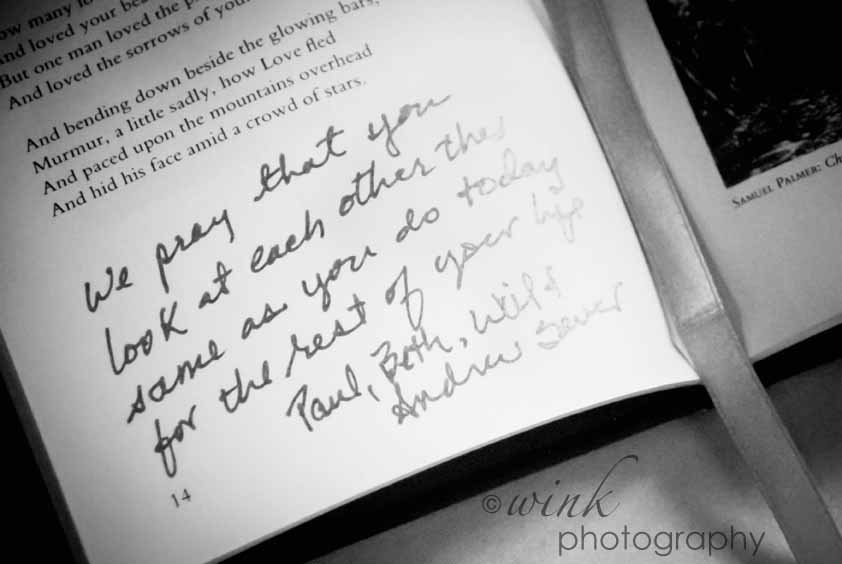 ow many lo
And loved your bea
But one man loved the p
And loved the sorrows of you
And bending down beside the glowing bars,
Murmur, a little sadly, how Love fled
And paced upon the mountains overhead
And hid his face amid a crowd of stars.
We pray that you
look at each other the
same as you do today
for the rest of your life
Paul, Beth, Will &
Andrew
14
SAMUEL PALMER: Ch
© wink
photography